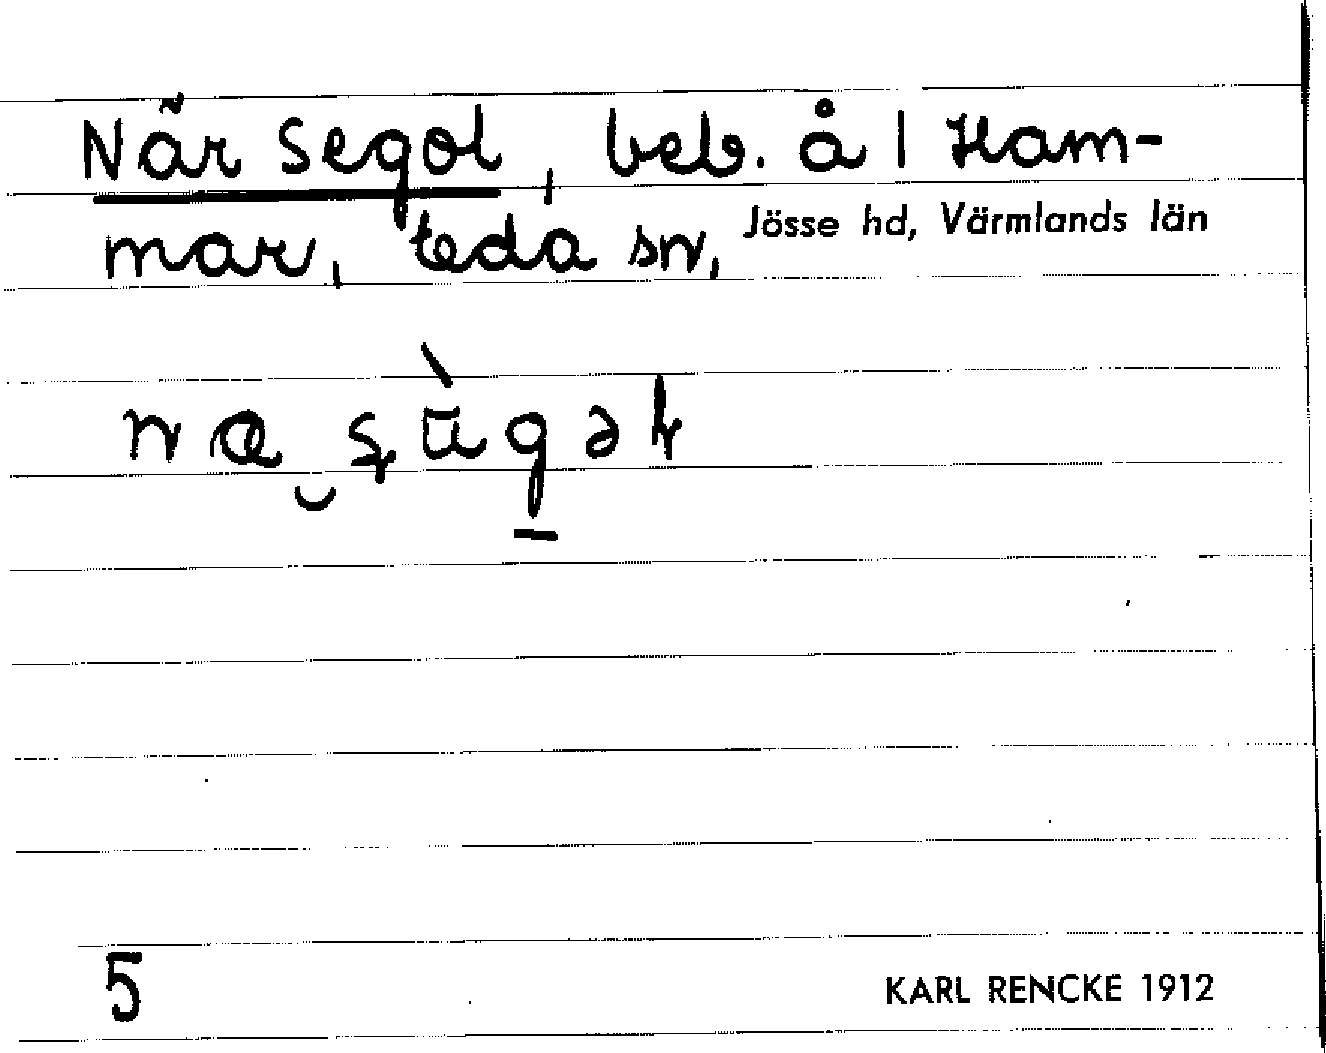 När Segol, beb. å 1 Ham-
mar, Eda sn,
Jösse hd, Värmlands län
5
KARL RENCKE 1912